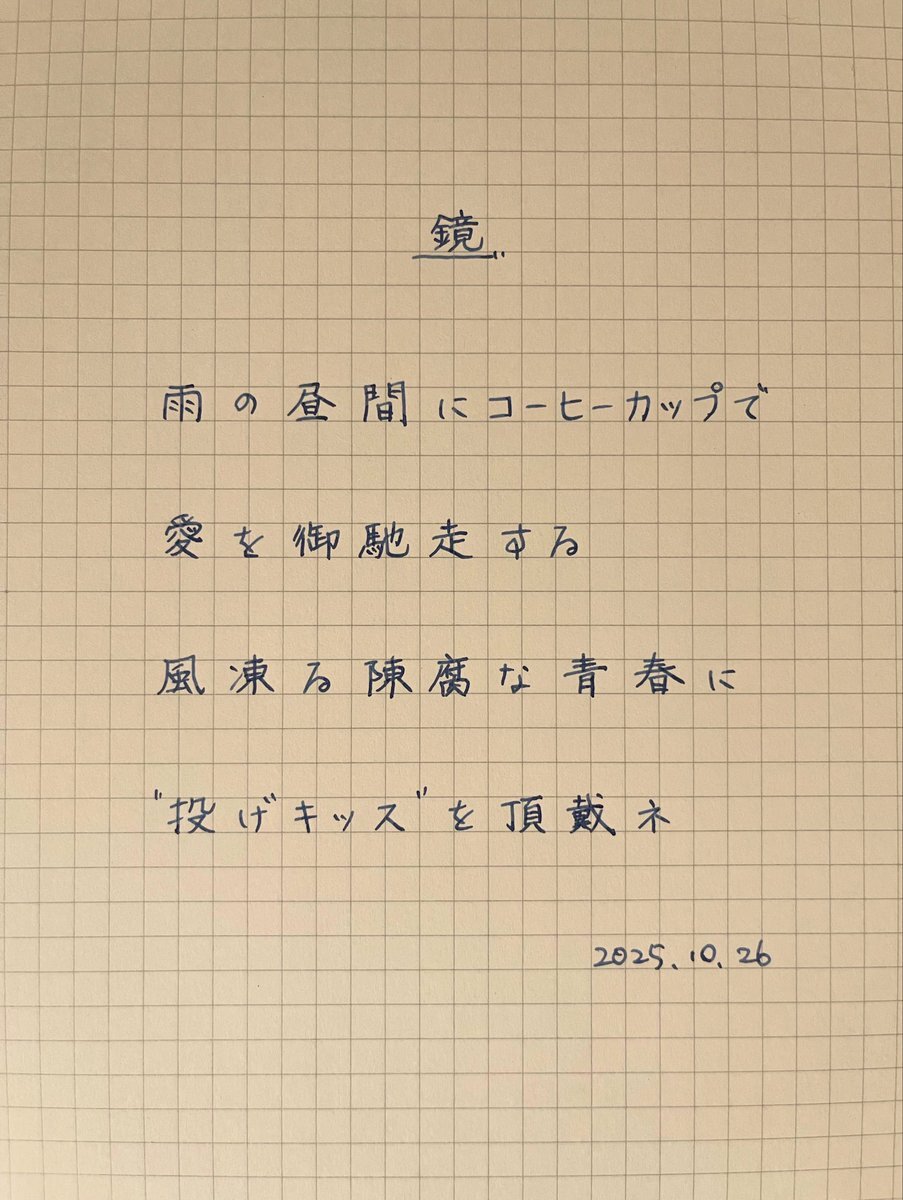 鏡
雨の昼間にコーヒーカップで
愛を御馳走する
風凍る陳腐な青春に
"投げキッス"を頂戴ネ
2025.10.26